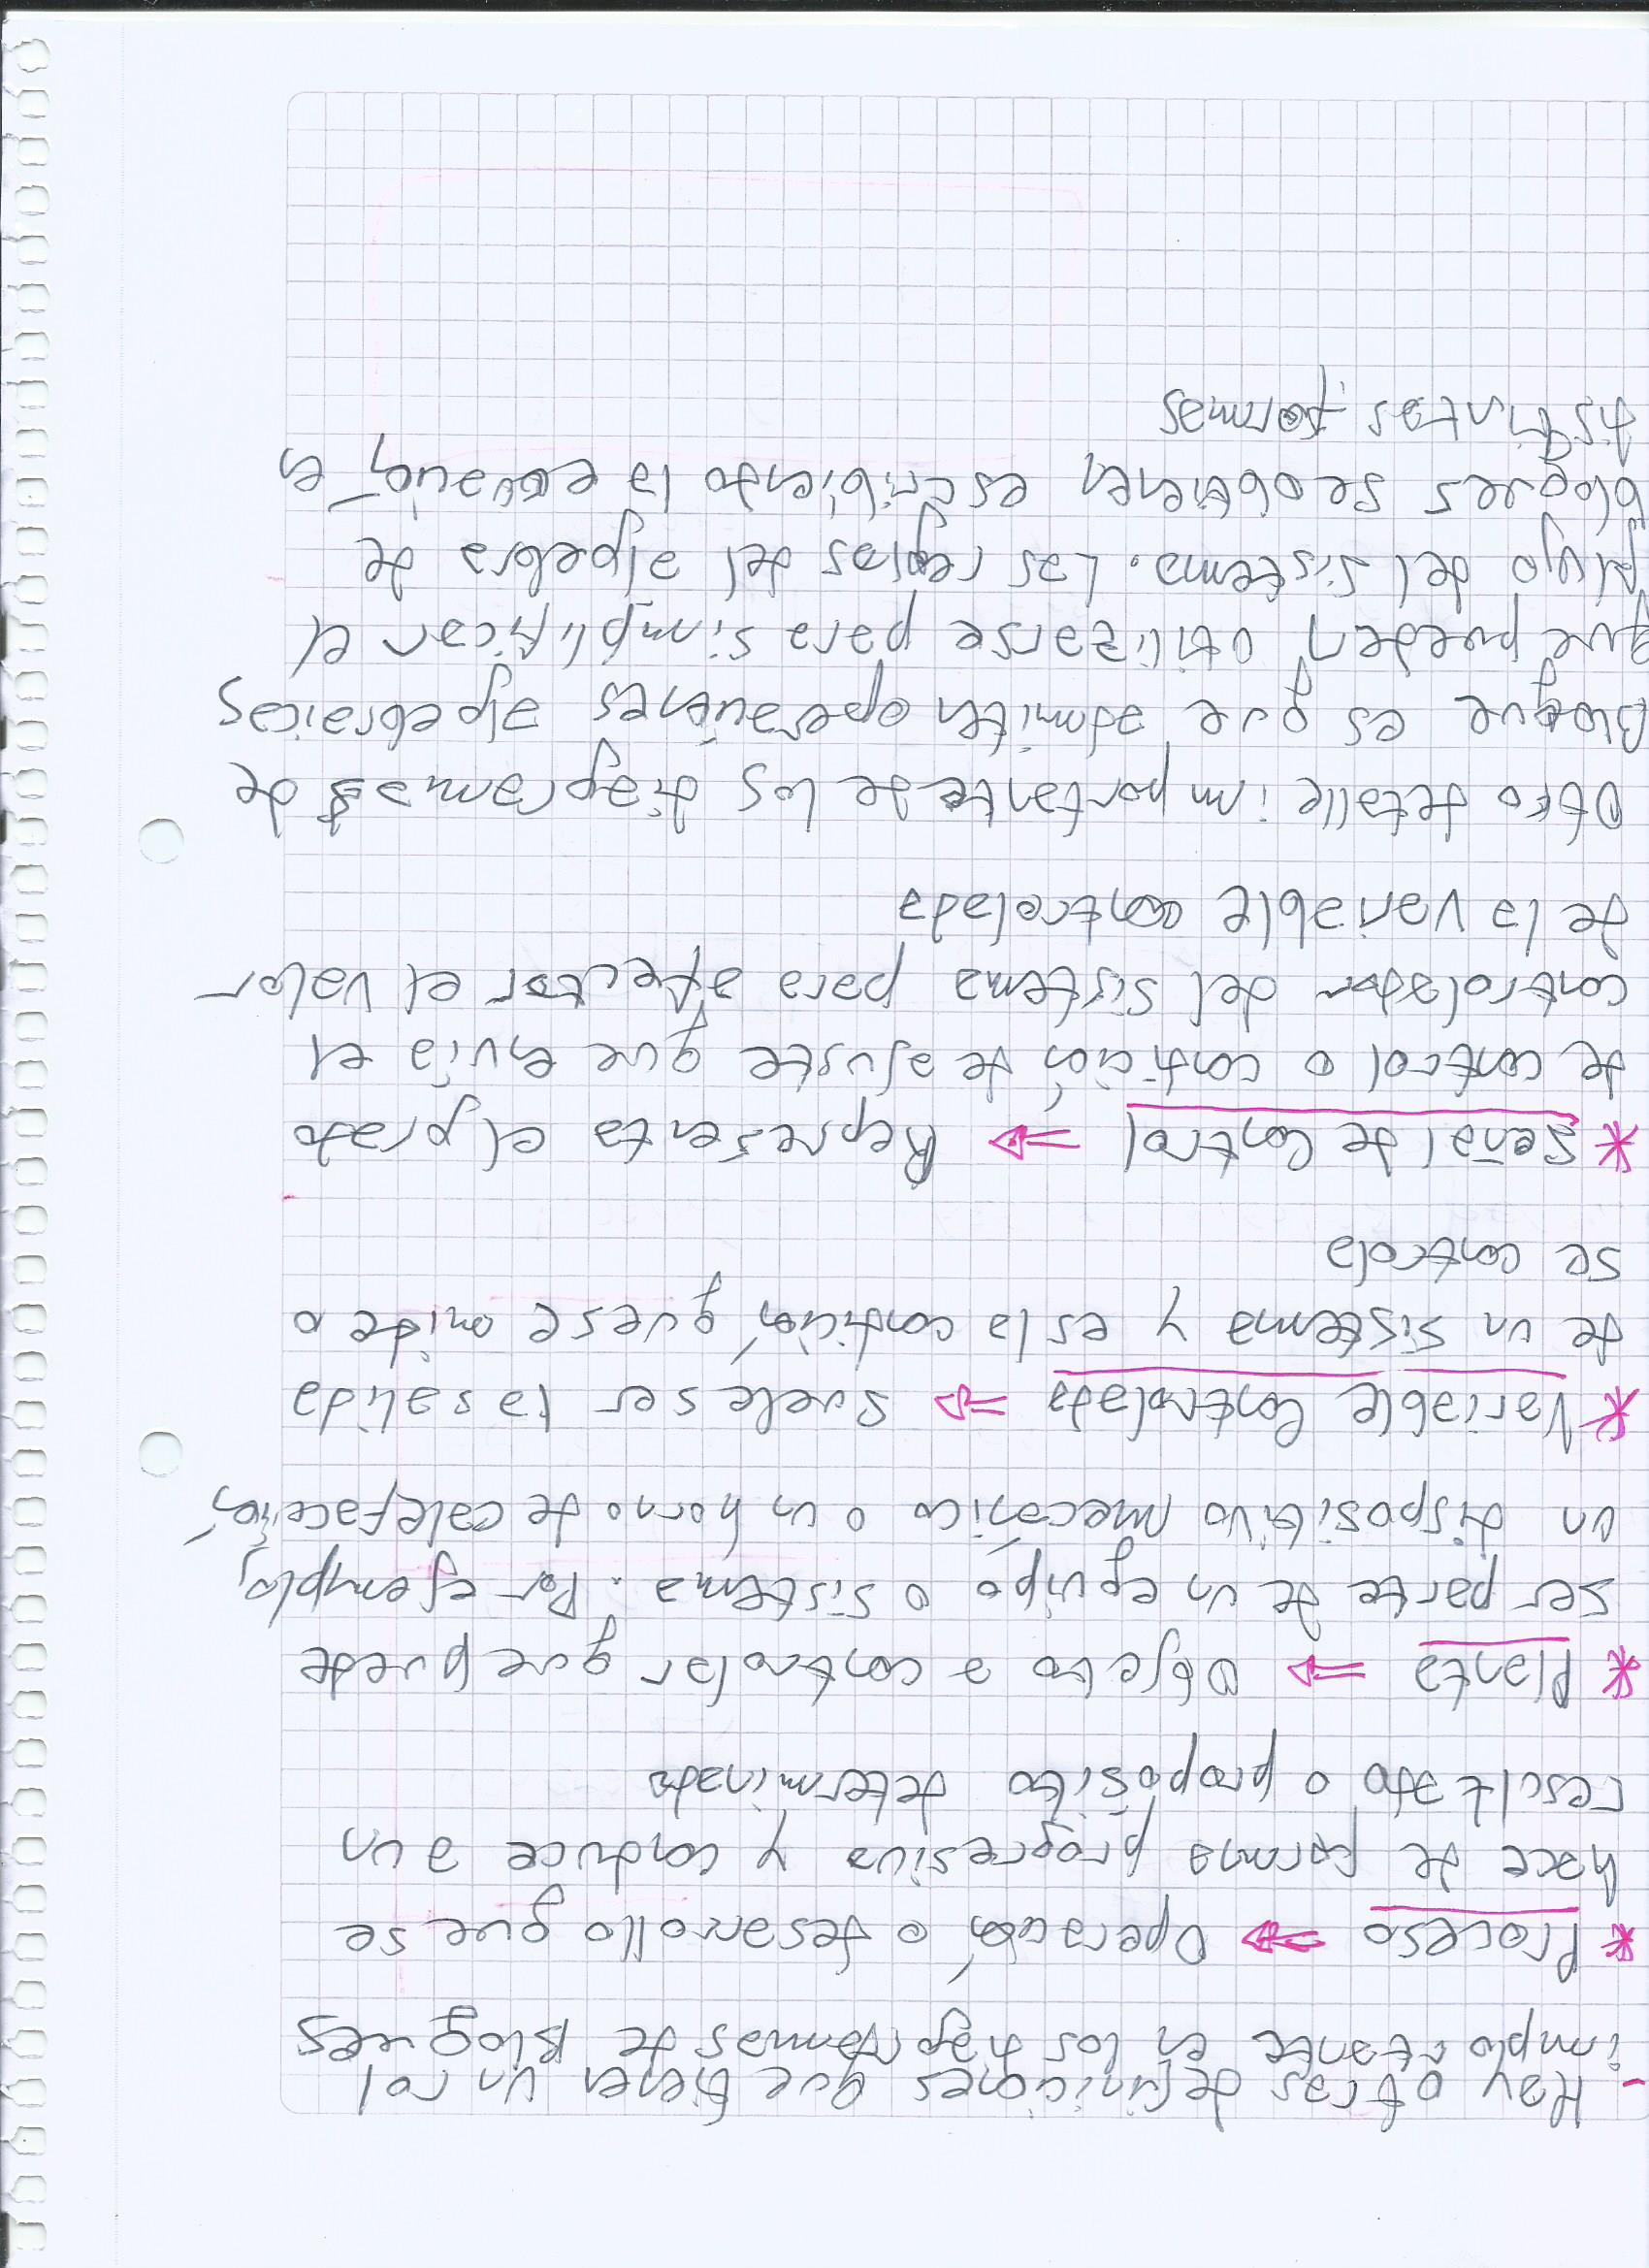 - Hay otras definiciones que tienen un rol
importante en los diagramas de Bloques
* Proceso ⇒ Operación o desarrollo que se
hace de forma progresiva y conduce a un
resultado o propósito determinado
* Planta ⇒ Objeto a controlar que puede
ser parte de un equipo o sistema. Por ejemplo,
un dispositivo mecánico o un horno de calefacción
* Variable Controlada ⇒ Suele ser la salida
de un sistema y es la condición que se mide o
se controla
* Señal de Control ⇒ Representa el
de control o condición de ajuste que envía el
controlador del sistema para afectar el valor
de la variable controlada
Otro detalle importante de los diagramas de
Bloque es que admiten operaciones algebraicas
que pueden utilizarse para simplificar el
flujo del sistema. Las reglas del álgebra de
bloques se obtienen escribiendo la ecuación en
distintas formas